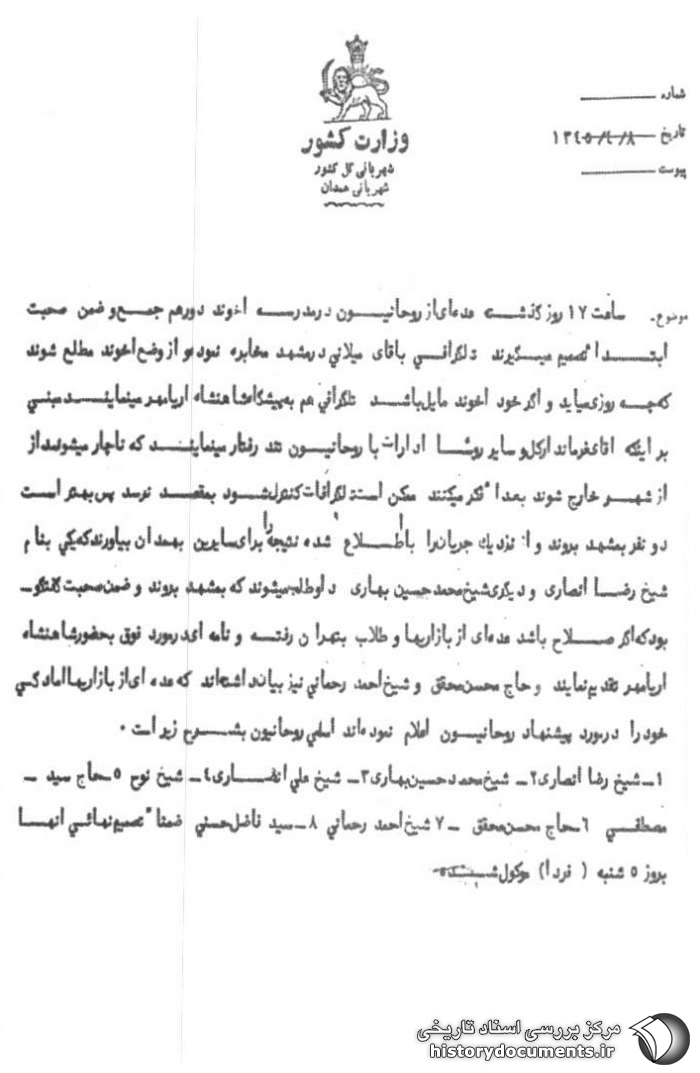 وزارت کشور
شهربانی کل کشور
شهربانی همدان
شماره
تاریخ ۱۳۴۵/۴/۸
پیوست
موضوع. ساعت ۱۷ روز گذشته عده‌ای از روحانیون در مدرسه اخوند دورهم جمع و ضمن صحبت
ابتدا تصمیم میگیرند تلگرافی باقای میلانی در مشهد مخابره نموده و از وضع اخوند مطلع شوند
که چه روزی میاید و اگر خود اخوند مایل باشد تلگرافی هم به پیشگاه شاهنشاه اریامهر مینمایند مبنی
بر اینکه اقای فرماندار کل و سایر روسا ادارات با روحانیون تند رفتار مینمایند که ناچار میشوند از
از شهر خارج شوند بعداً فکر میکنند ممکن است تلگرافات کنترل شود بمقصد نرسد پس بهتر است
دو نفر بمشهد بروند و از نزدیک جریان را باطلاع شده نتیجه را برای سایرین بهمدان بیاورند که یکی بنام
شیخ رضا انصاری و دیگری شیخ محمد حسین بهاری داوطلب میشوند که بمشهد بروند و ضمن صحبت گفتگو ـ
بود که اگر صلاح باشد عده‌ای از بازاریها و طلاب بتهران رفته و نامه ای در مورد فوق بحضور شاهنشاه
اریامهر تقدیم نمایند و حاج محسن محقق و شیخ احمد رحمانی نیز بیان داشته‌اند که عده ای از بازاریها امادگی
خود را در مورد پیشنهاد روحانیون اعلام نموده‌اند اسامی روحانیون بشرح زیر است ۰
۱ـ شیخ رضا انصاری ۲ـ شیخ محمد حسین بهاری ۳ـ شیخ علی انصاری ۴ـ شیخ نوح ۵ـ حاج سید ـ
مصطفی ۶ـ حاج محسن محقق ـ ۷ شیخ احمد رحمانی ۸ـ سید فاضل حسنی ضمناً تصمیم نهائی انها
بروز ۵ شنبه ( فردا) موکول شده
مرکز بررسی اسناد تاریخی
historydocuments.ir